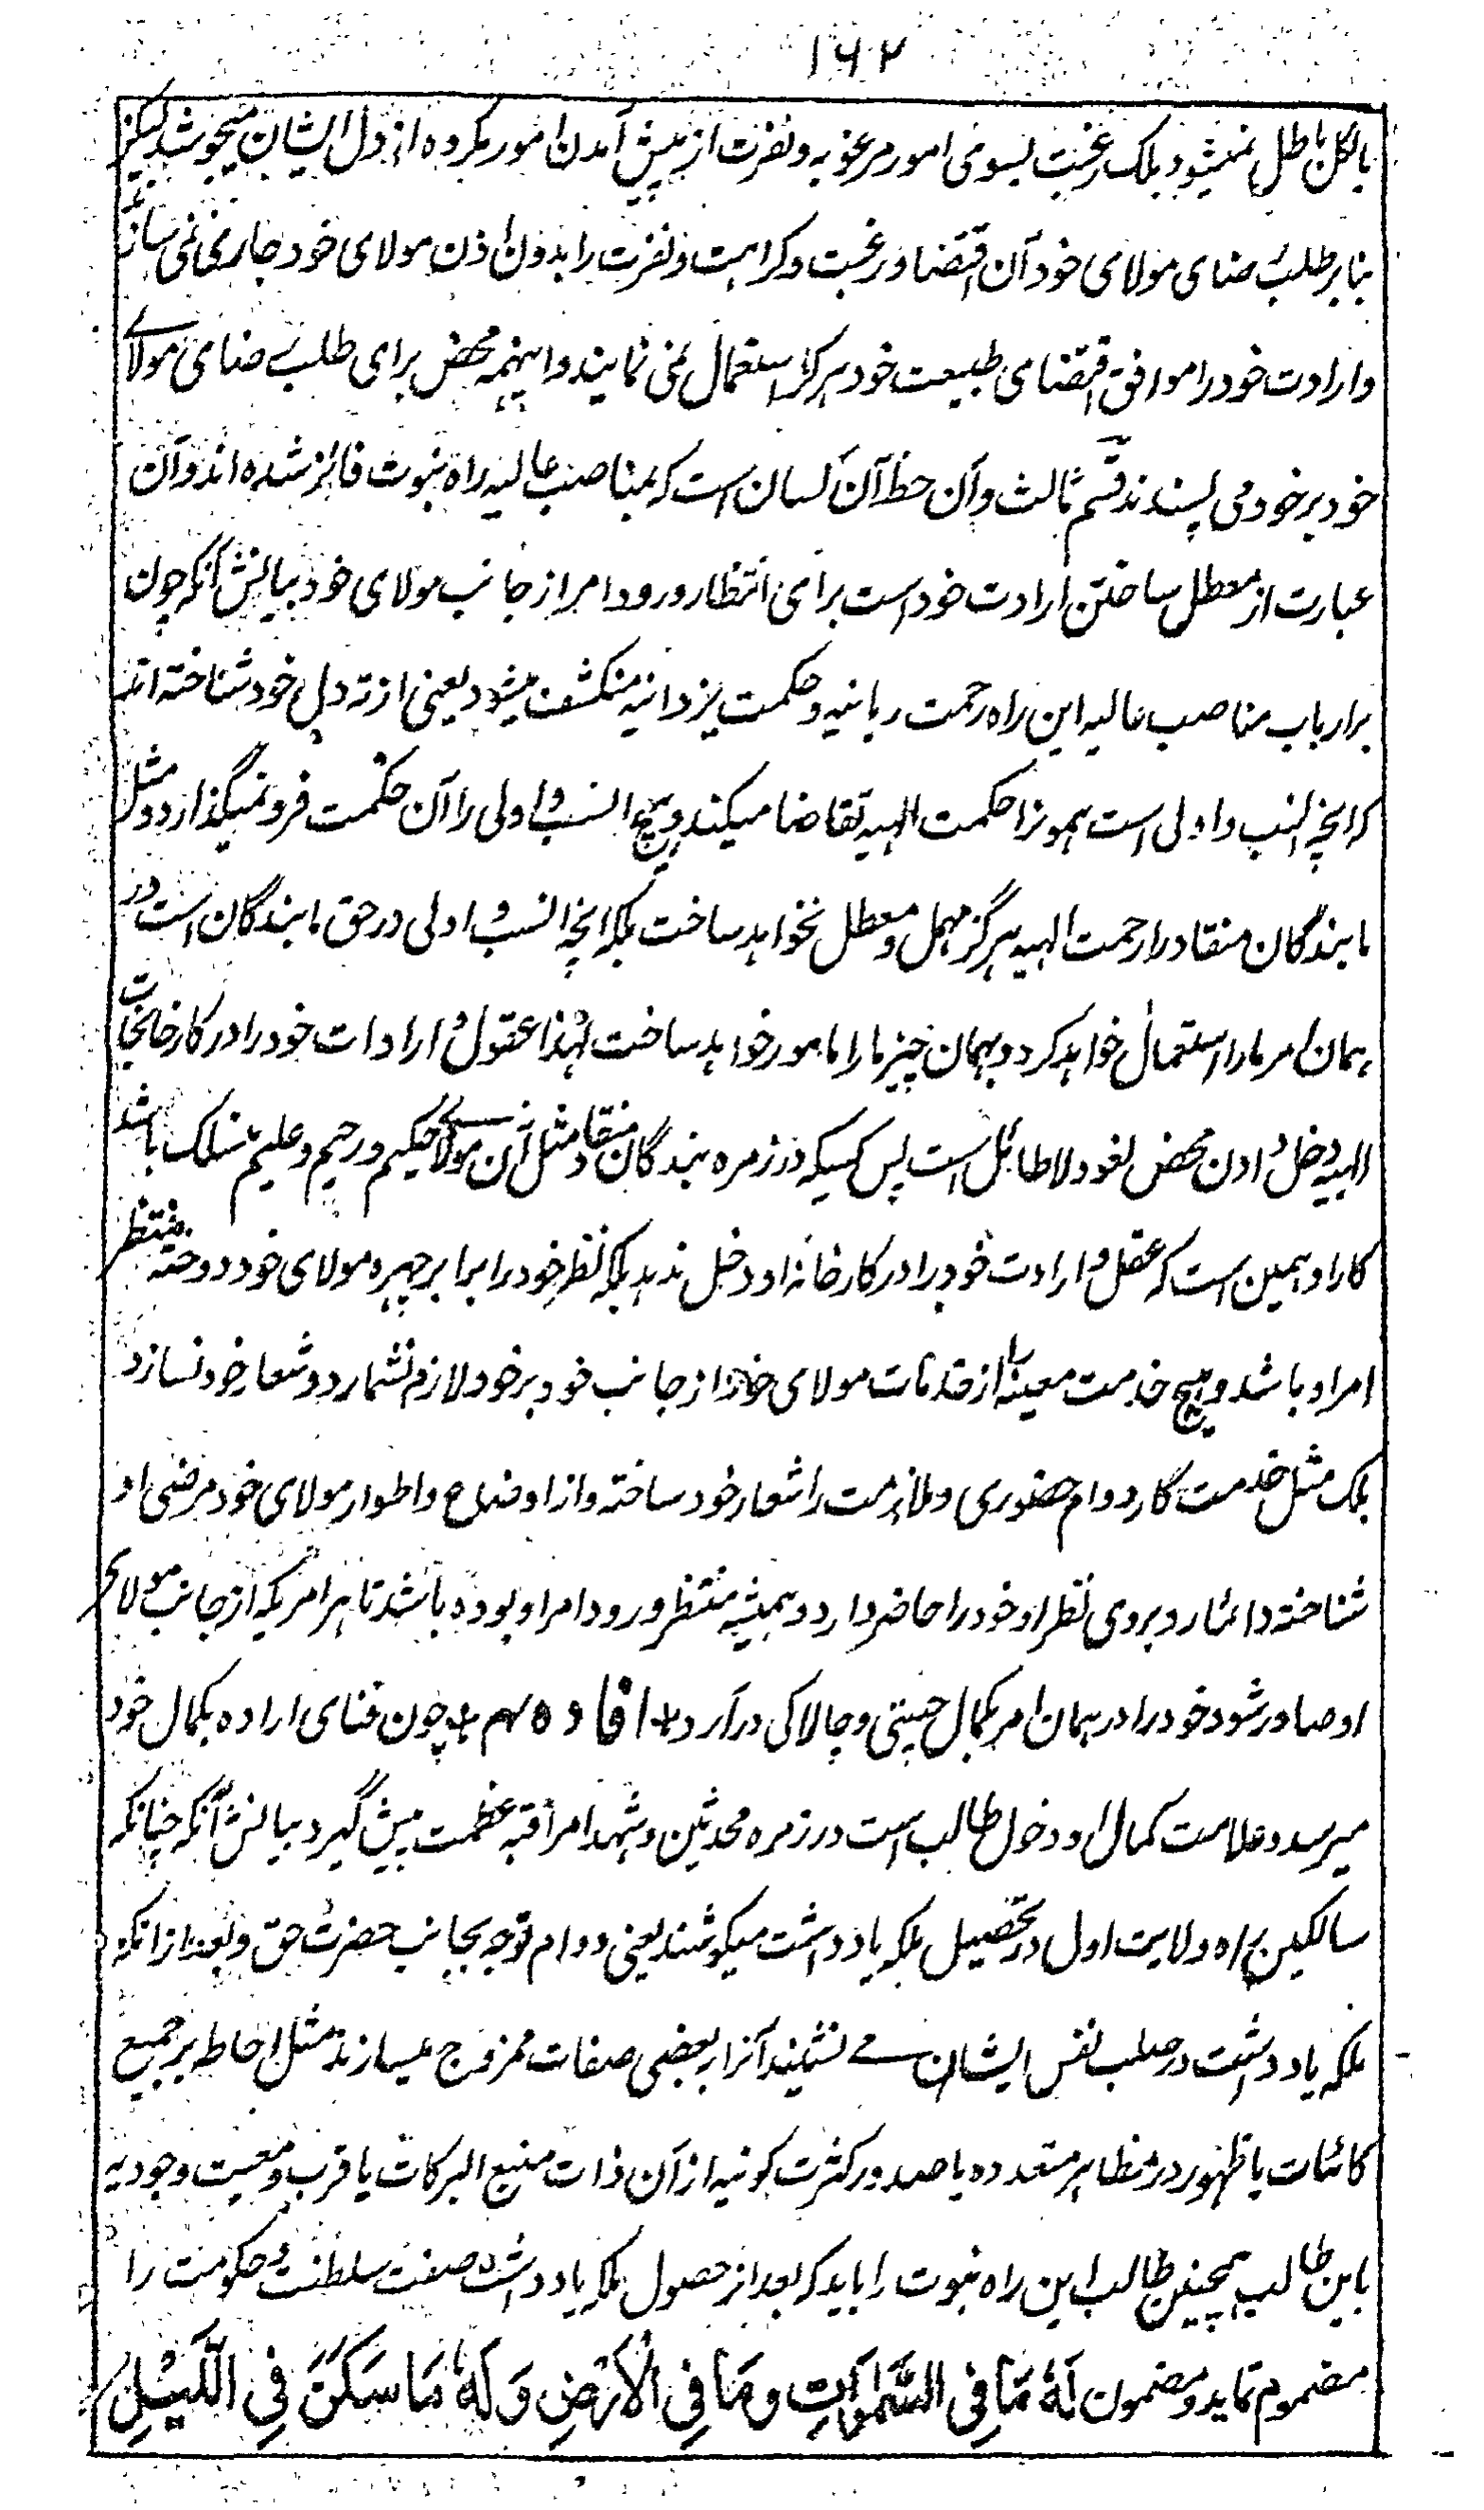 ۱۶۲
بالکل باطل نمیشود بلکه رغبت بسوی امور مرغوبه و نفرت از پیش آمدن امور مکروه از دل ایشان میجوشد لیکن
بنابر طلب رضای مولای خود آن اقتضا و رغبت و کراهت و نفرت را بدون اذن مولای خود جاری نمی سازند
و ارادت خود را موافق اقتضای طبیعت خود هرگز استعمال نمی نمایند و اینهمه محض برای طلب رضای مولاے
خود بر خود می پسندند قسم ثالث و آن حظ آن کسان است که بمناصب عالیه راه نبوت فائز شده اند و آن
عبارت از معطل ساختن ارادت خود است برای انتظار ورود امر از جانب مولای خود بیانش آنکه چون
بر ارباب مناصب عالیه این راه رحمت ربانیه و حکمت یزدانیه منکشف میشود یعنی از ته دل خود شناخته اند
که انچه انسب و اولی است همونرا حکمت الهیه تقاضا میکند و هیچ انسب و اولی را آن حکمت فرو نمیگذارد و مثل
ما بندگان منقاد را رحمت الهیه هرگز مهمل و معطل نخواهد ساخت بلکه انچه انسب و اولی در حق ما بندگان است در
همان امر ما را استعمال خواهد کرد و بهمان چیز ما را مامور خواهد ساخت لهذا عقول و ارادات خود را در کارخانجات
الهیه دخل دادن محض لغو و لا طائل است پس کسیکه در زمره بندگان منقاد مثل آن مولاے حکیم و رحیم و علیم منسلک باشد
کار او همین است که عقل و ارادت خود را در کارخانه او دخل ندهد بلکه نظر خود را برابر چهره مولای خود دوخته منتظر
امر او باشد و هیچ خدمت معینه را از خدمات مولای خود از جانب خود بر خود لازم نشمارد و شعار خود نسازد
بلکه مثل خدمت گار دوام حضوری و ملازمت را شعار خود ساخته و از اوضاع و اطوار مولای خود مرضی او
شناخته دائما رو بروی نظر او خود را حاضر دارد و همیشه منتظر ورود امر او بوده باشد تا هر امریکه از جانب مولای
او صادر شود خود را در همان امر بکمال چستی و چالاکی در آرد + افاده ۴ + چون فنای اراده بکمال خود
میرسد و علامت کمال او دخول طالب است در زمره محدثین و شهدا مراقبه عظمت پیش گیرد بیانش آنکه چنانکه
سالکین راه ولایت اول در تحصیل ملکه یادداشت میکوشند یعنی دوام توجه بجانب حضرت حق و بعد ازانکه
ملکه یادداشت در صلب نفس ایشان مے نشیند آنرا ببعضی صفات ممزوج میسازند مثل احاطه بر جمیع
کائنات یا ظهور در مظاهر متعدده یا صدور کثرت کونیه از آن ذات منبع البرکات یا قرب و معیت وجودیه
باین طالب همچنین طالب این راه نبوت را باید که بعد از حصول ملکه یادداشت صفت سلطنت و حکومت را
مضموم نماید و مضمون لَهُ مَا فِی السَّمٰوَاتِ وَ مَا فِی الْاَرْضِ وَ لَهُ مَا سَکَنَ فِی اللَّیْلِ